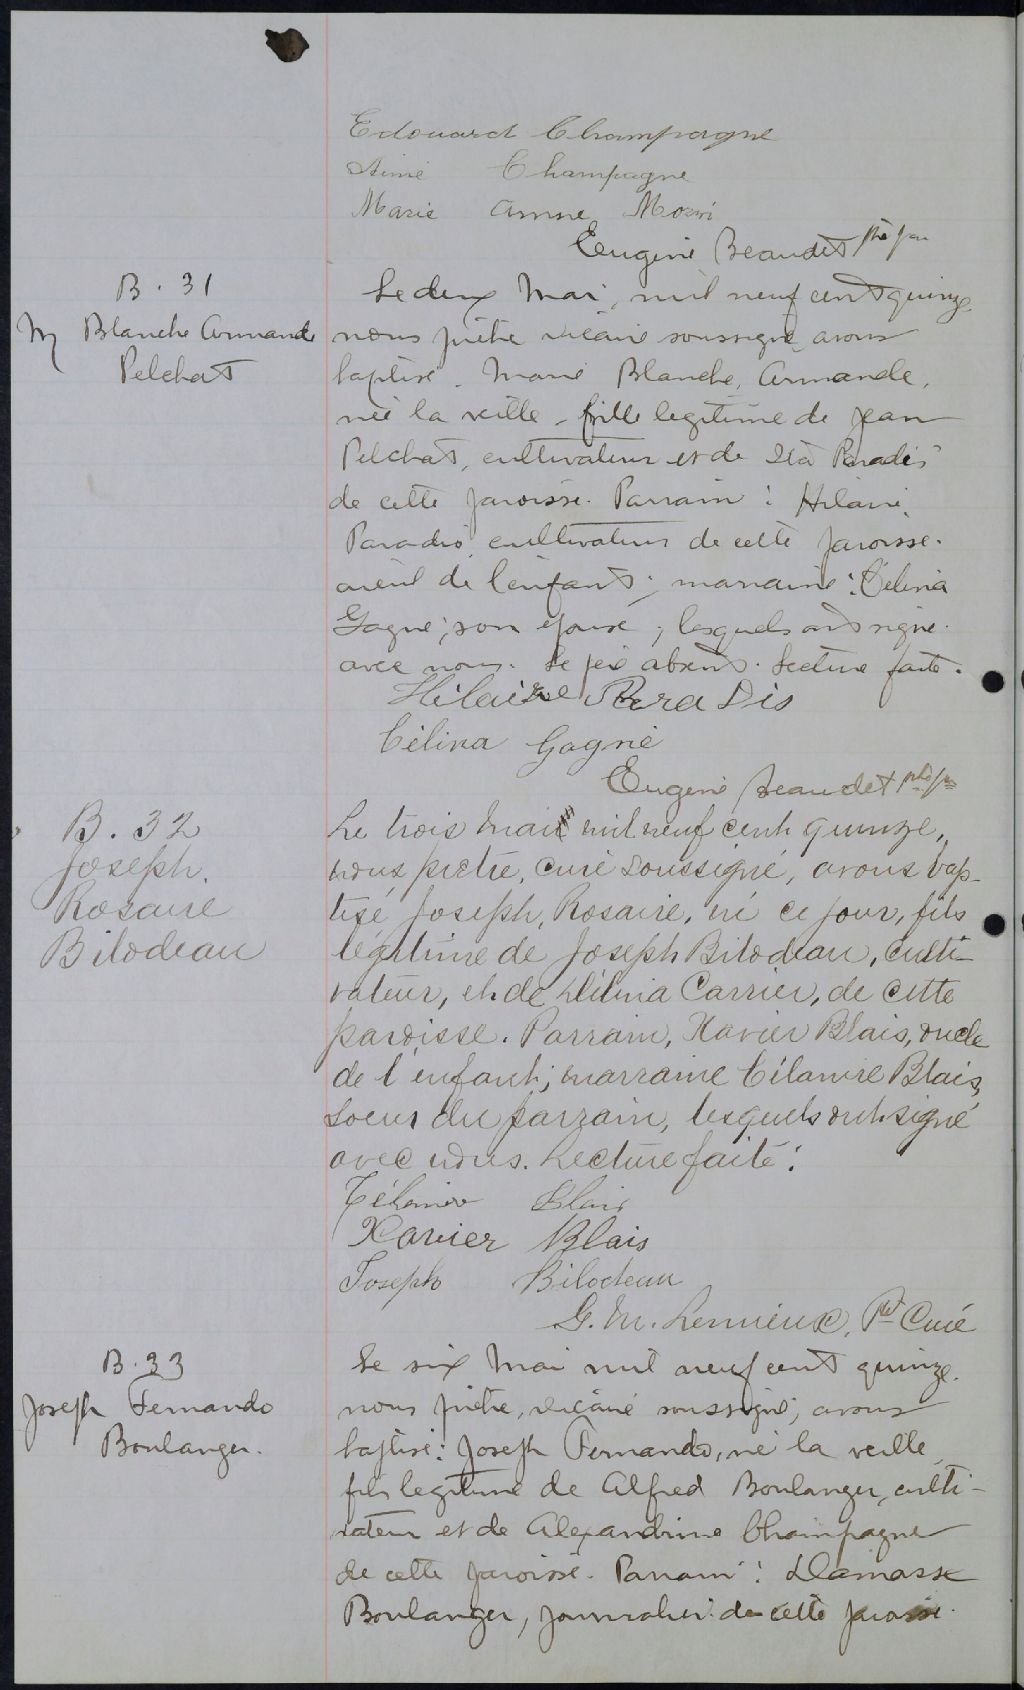 Edouard Champagne
Aimé Champagne
Marie Anne Morin
Eugène Beaudet ptre
B. 31
M Blanche Armande
Pelchat
Le deux Mai, mil neuf cent quinze
nous prêtre vicaire soussigné avons
baptisé Marie Blanche, Armande,
née la veille, fille legitime de Jean
Pelchat, cultivateur et de Paradis
de cette paroisse. Parrain : Hilaire
Paradis cultivateur de cette paroisse.
aieul de l'enfant ; marraine : Célina
Gagné, son épouse ; lesquels ont signé
avec nous. Le père absent. Lecture faite.
Hilaire Paradis
Célina Gagné
Eugène Beaudet ptre
B. 32
Joseph.
Rosaire
Bilodeau
Le trois Mai mil neuf cent quinze,
nous pretre, curé soussigné, avons bap-
tisé Joseph, Rosaire, né ce jour, fils
légitime de Joseph Bilodeau, culti-
vateur, et de Délima Carrier, de cette
paroisse. Parrain, Xavier Blais, oncle
de l'enfant ; marraine Célanire Blais,
soeur du parrain, lesquels ont signé
avec nous. Lecture faite.
Célanire Blais
Xavier Blais
Joseph Bilodeau
G. M. Lemieux, Ptre Curé
B. 33
Joseph Fernando
Boulanger.
Le six Mai mil neuf cent quinze.
nous prêtre, vicaire soussigné, avons
baptisé : Joseph Fernando, né la veille
fils legitime de Alfred Boulanger, culti-
vateur et de Alexandrine Champagne
de cette paroisse. Parrain : Damasse
Boulanger, journalier de cette paroisse.